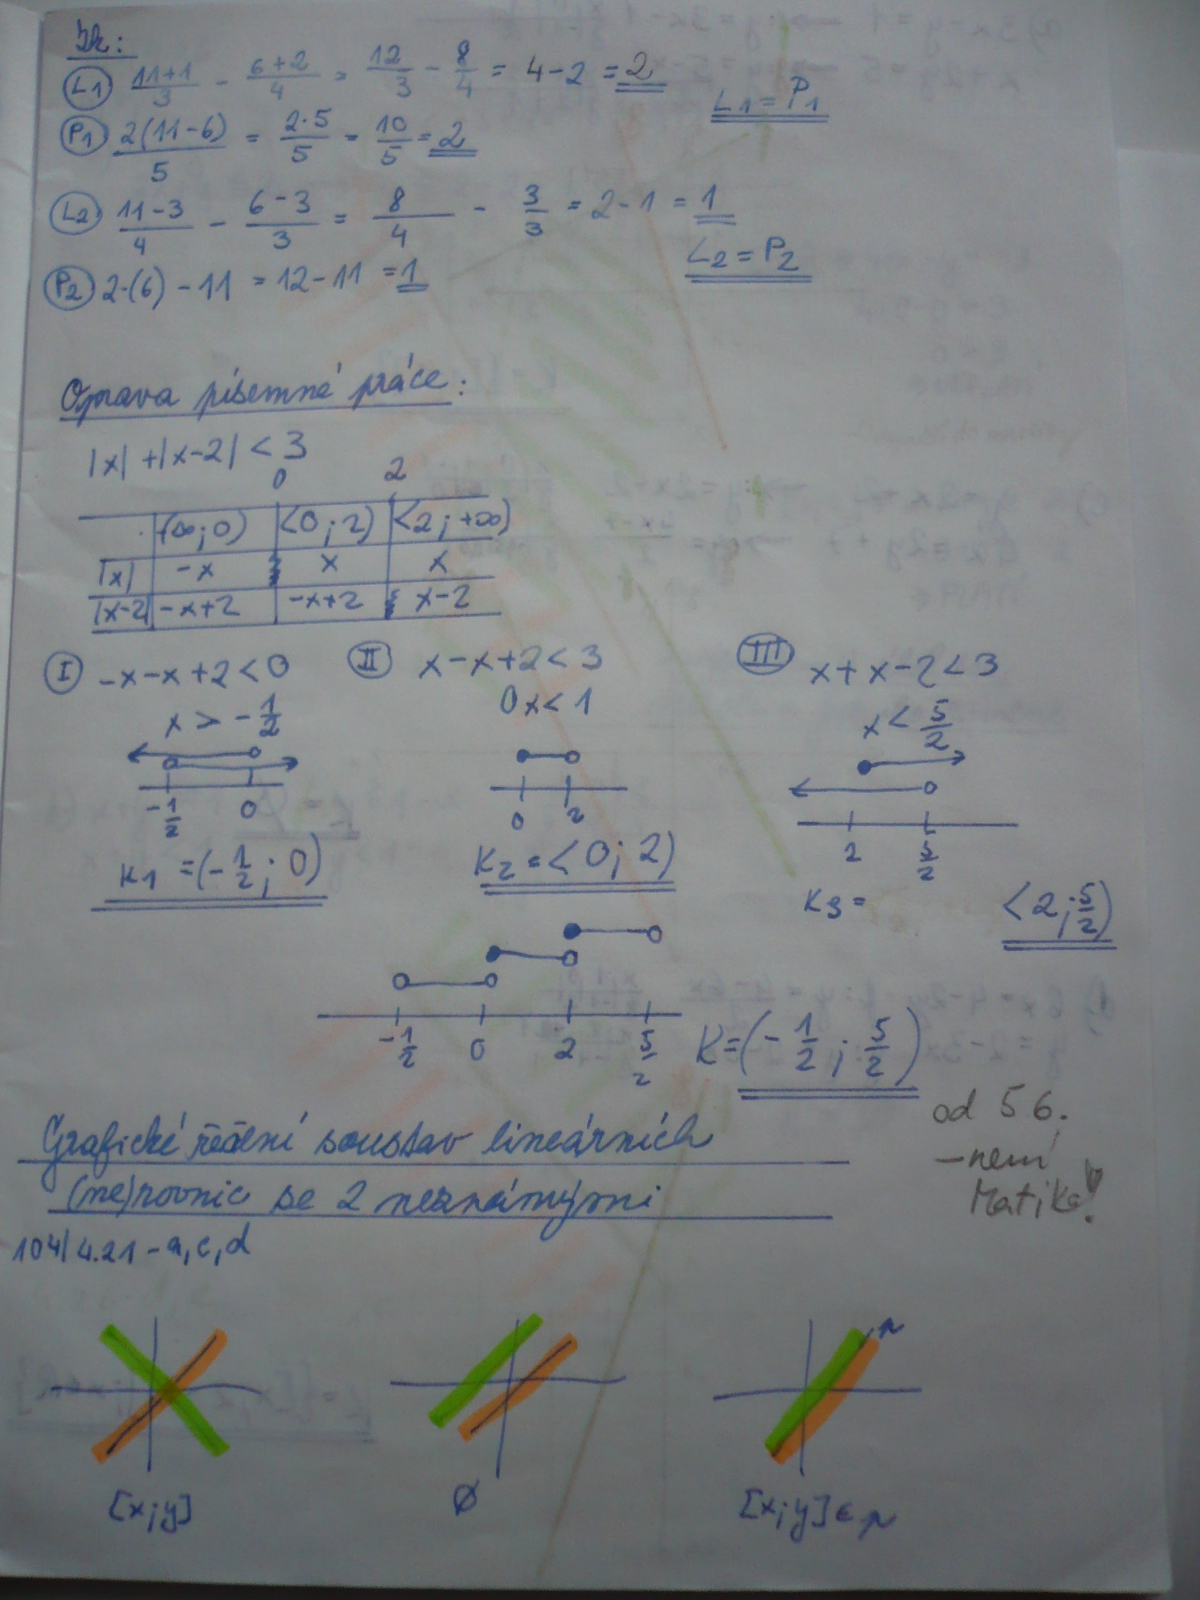 Zk:
L1 (11+1)/3 - (6+2)/4 = 12/3 - 8/4 = 4-2 = 2
L1 = P1
P1 2(11-6)/5 = 2·5/5 = 10/5 = 2
L2 (11-3)/4 - (6-3)/3 = 8/4 - 3/3 = 2-1 = 1
L2 = P2
P2 2·(6) - 11 = 12-11 = 1
Oprava písemné práce:
|x| + |x-2| < 3
0 2
(∞;0) <0;2) <2;+∞)
|x| -x x x
|x-2| -x+2 -x+2 x-2
I -x-x+2<0 II x-x+2<3 III x+x-2<3
x > -1/2 0x<1 x < 5/2
-1/2 0 0 2 2 5/2
K1 = (-1/2; 0) K2 = <0; 2) K3 = <2; 5/2)
-1/2 0 2 5/2 K = (-1/2; 5/2)
od 56.
-není
Matika!
Grafické řešení soustav lineárních
(ne)rovnic se 2 neznámými
104/4.21 - a, c, d
p
[x;y] ∅ [x;y] ∈ p